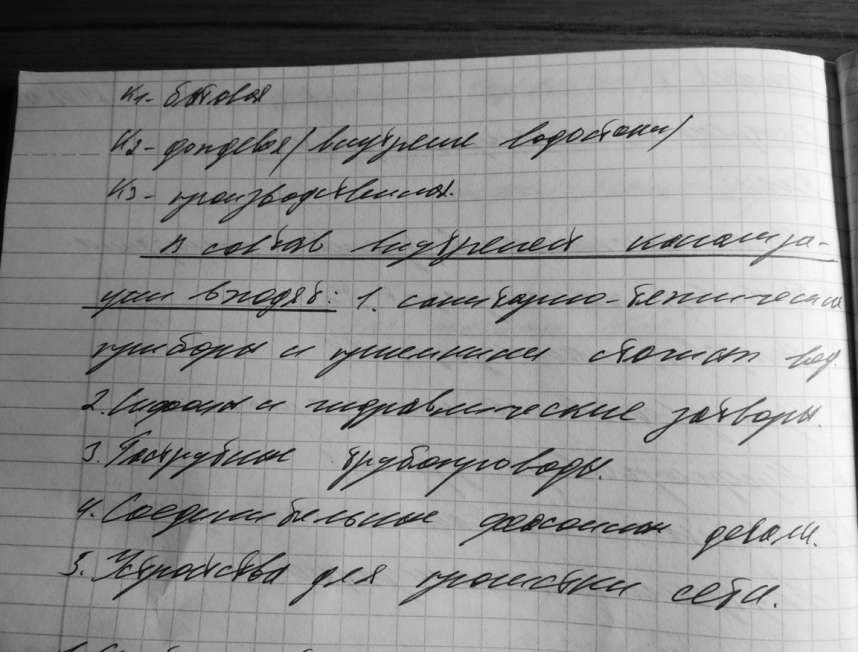 К1- бытовая
К2- дождевая/внутрение водостоки/
К3- производственная.
В состав внутреней канализа-
ции входят: 1. санитарно-технические
приборы и приемники сточных вод.
2. Сифоны и гидравлические затворы.
3. Раструбные трубопроводы.
4. Соединительные фасонные детали.
5. Устройства для прочистки сети.